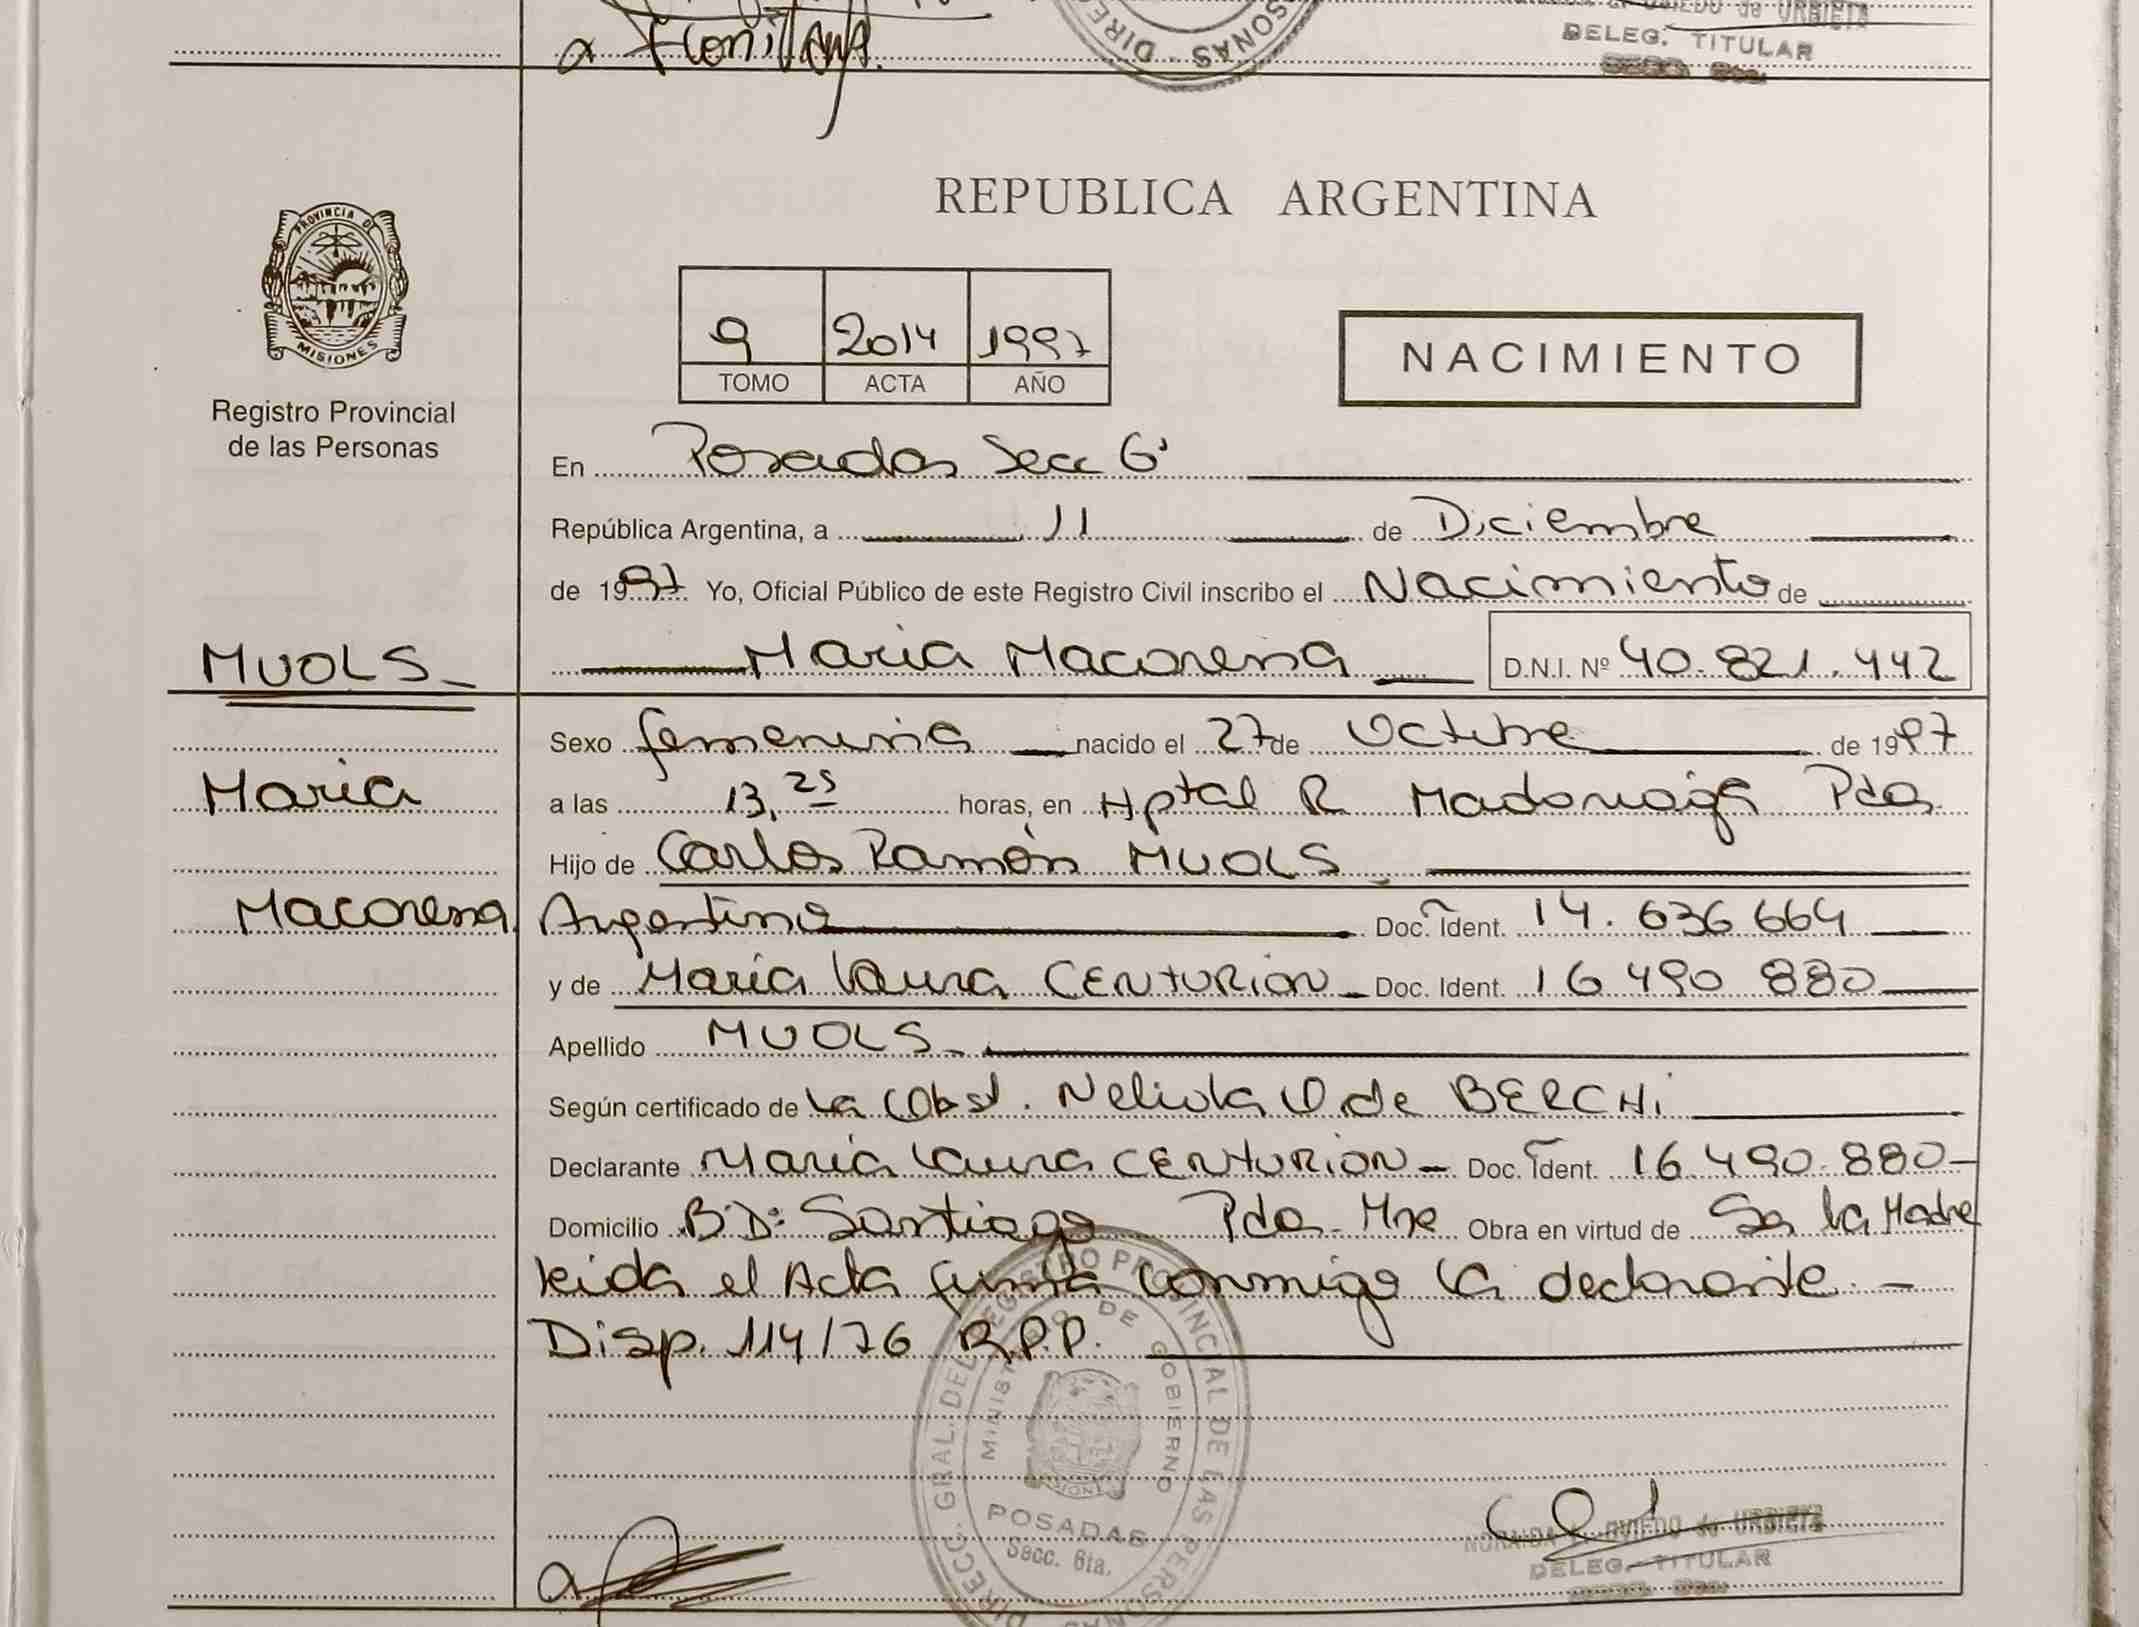 a
DELEG. TITULAR
PROVINCIA DE
MISIONES
Registro Provincial
de las Personas
REPUBLICA ARGENTINA
9 2014 1997
TOMO ACTA AÑO
NACIMIENTO
En Posadas Secc 6ª
República Argentina, a 11 de Diciembre
de 1997 Yo, Oficial Público de este Registro Civil inscribo el Nacimiento de
MUOLS Maria Macorena D.N.I. Nº 40.821.442
Sexo femenino nacido el 27 de Octubre de 1997
Maria a las 13,25 horas, en Hptal R Madariaga Pdas
Hijo de Carlos Ramón MUOLS
Macorena Argentina Doc. Ident. 14.636 664
y de Maria Laura CENTURION Doc. Ident. 16 490 880
Apellido MUOLS
Según certificado de La Obst. de BERCHi
Declarante Maria Laura CENTURION Doc. Ident. 16.490.880
Domicilio Bº Dº Santiago Pdas. Mnes Obra en virtud de Ser la Madre
Leida el Acta firma conmigo la declarante
Disp. 114/76 R.P.P.
DIRECC. GRAL. DEL REGISTRO PROVINCIAL DE LAS PERSONAS
MINISTERIO DE GOBIERNO
POSADAS
Secc. 6ta.
OVIEDO de URBIETA
DELEG. TITULAR